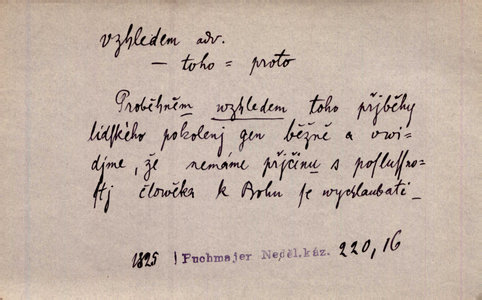 vzhledem adv.
— toho = proto
Proběhněm wzhledem toho přjběhy
lidského pokolenj gen běžně a vwi-
djme, že nemáme přjčinu s poslussno-
stj člowěka k Bohu se wychlaubati_
1825 | Puchmajer Neděl. káz. 220,16